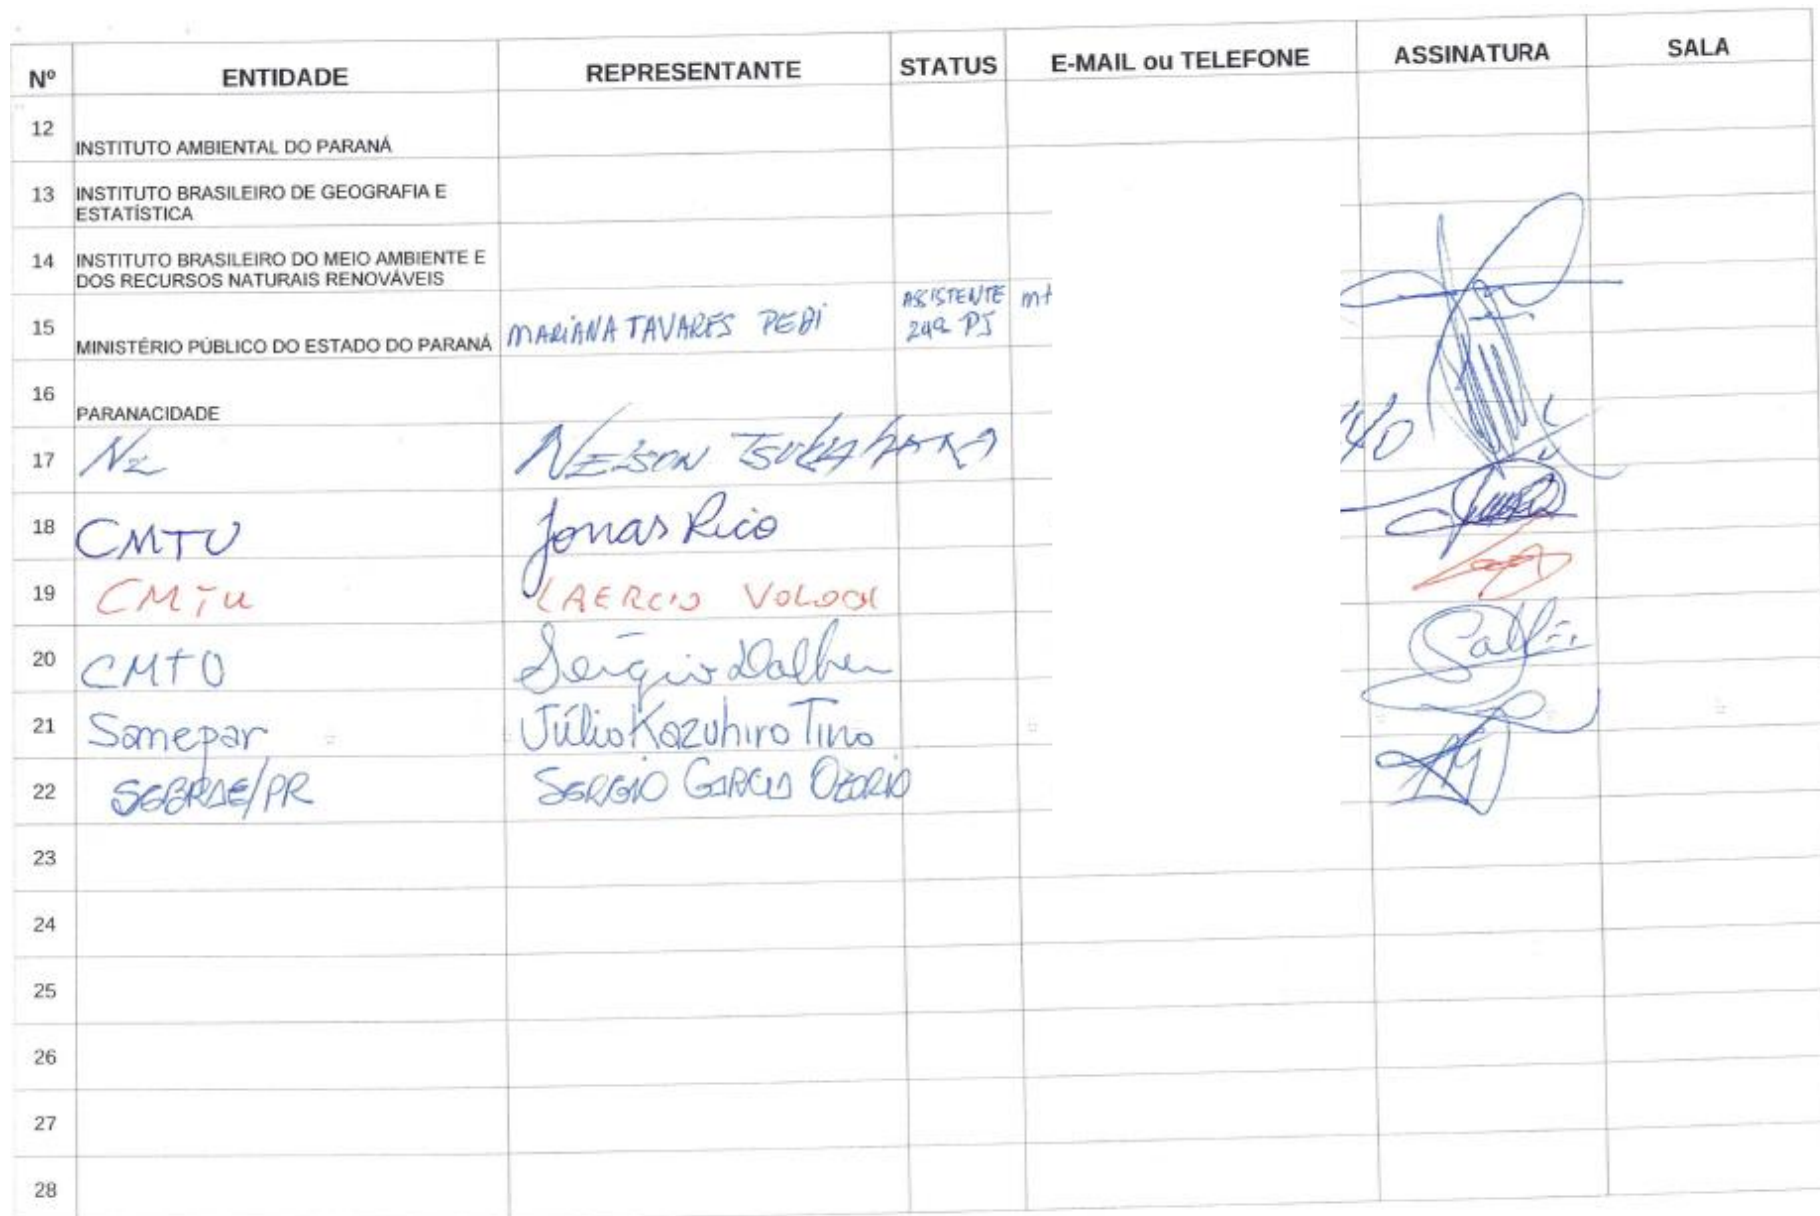 Nº ENTIDADE REPRESENTANTE STATUS E-MAIL ou TELEFONE ASSINATURA SALA
12 INSTITUTO AMBIENTAL DO PARANÁ
13 INSTITUTO BRASILEIRO DE GEOGRAFIA E
ESTATÍSTICA
14 INSTITUTO BRASILEIRO DO MEIO AMBIENTE E
DOS RECURSOS NATURAIS RENOVÁVEIS
15 MINISTÉRIO PÚBLICO DO ESTADO DO PARANÁ MARIANA TAVARES ASSISTENTE
24ª PJ
16 PARANACIDADE
17 NELSON
18 CMTU Jonas Rico
19 CMTU LAERCIO
20 CMTU Sérgio
21 Sanepar Júlio Kazuhiro Tino
22 SEBRAE/PR SERGIO GARCIA OZORIO
23
24
25
26
27
28